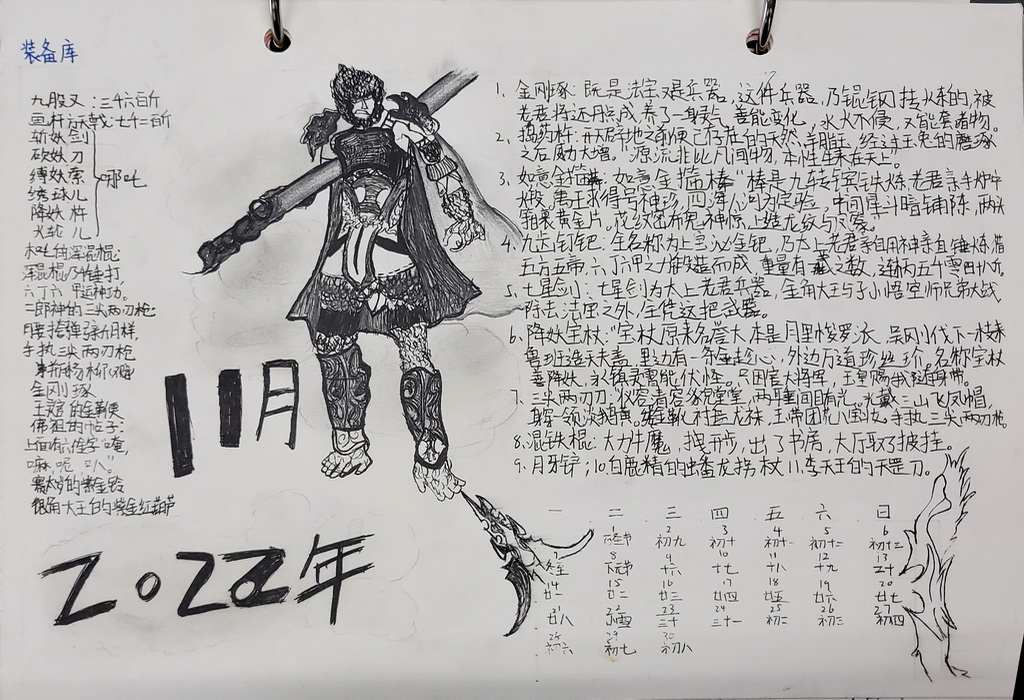 装备库
九股叉：三千六百斤
画杆方天戟：七千二百斤
斩妖剑
砍妖刀
缚妖索
绣球儿
降妖杵
火轮儿
哪吒
木吒的浑混棍：
浑混棍乃千锤打，
六丁六甲运神功。
二郎神的三尖两刃枪：
腰挎弹弓新月样，
手执三尖两刃枪
金刚琢
佛祖的帖子：
上面有六个字“唵，
嘛 呢 叭
赛太岁的紫金铃
银角大王的紫金红葫芦
11月
2022年
1、金刚琢：既是法宝又是兵器，这件兵器，乃锟钢抟炼的，被
老君将还丹点成，养了一身灵气，善能变化，水火不侵，又能套诸物。
2、捣药杵：开天辟地之前便已存在的天然羊脂玉，经过玉兔的磨琢
之后威力大增。“源流非比凡间物，本性生来在天上”。
3、如意金箍棒：“如意金箍棒”棒是九转镔铁炼，老君亲手炉中
煅，禹王求得号神珍，四海八河为定验，中间星斗暗铺陈，两头
箝裹黄金片。花纹密布鬼神惊，上造龙纹与凤篆。
4、九齿钉钯：全名称为上宝沁金钯，乃太上老君亲自用神铁亲自锤炼，借
五方五帝，六丁六甲之力锻造而成，重量有藏之数，连柄五千零四十八斤
5、七星剑：七星剑为太上老君兵器，金角大王与孙悟空师兄弟大战
除去法宝之外，全凭这把武器。
6、降妖宝杖：“宝杖原来名誉大，本是月里梭罗派，吴刚伐下一枝来
鲁班造天大盖，里边有一条金趁心，外边万道珍丝玠，名称宝杖
善降妖，永镇灵霄能伏怪。只因官大将军，玉皇赐我随身带。
7、三尖两刃刀：仪容清秀貌堂堂，两耳垂肩目有光。头戴三山飞凤帽，
身穿一领淡鹅黄。缕金靴衬盘龙袜，玉带团花八宝妆，手执三尖两刃枪。
8、混铁棍：大力牛魔，拽开步，出了书房，大厅取了披挂。
9、月牙铲；10、白鹿精的蟠龙拐杖 11、李天王的天罡刀。
一 二 三 四 五 六 日
1 2 3 4 5 6
初九 初十 十一 初十二 初十三
7 8 9 10 11 12 13
下元节 十六 十七 十八 十九 二十
14 15 16 17 18 19 20
廿一 廿二 廿三 廿四 廿五 廿六 廿七
21 22 23 24 25 26 27
廿八 小雪 三十 三十一 初二 初三 初四
29 30
初六 初七 初八